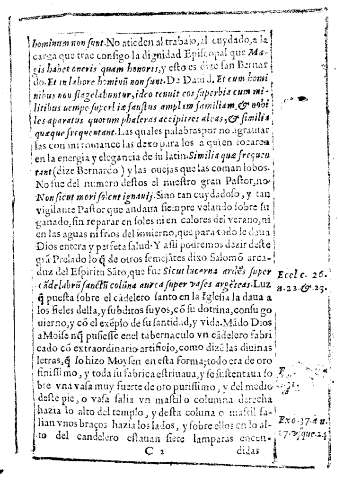 hominum non sunt. No atiēden al trabajo, al cuydado, a la
carga que trae consigo la dignidad Episcopal que Ma-
gis habet oneris quam honoris, y esto es dize san Bernar
do. Et in labore hominū non sunt. Da Dauid. Et cum homi
nibus non flagelabuntur, ideo tenuit eos superbia cum mi-
litibus
familiam, & nobi
les aparatus quorum phaleras accipitres aleas, & similia
quæque frequentant. Las quales palabras por no agrauiar
las con mi romance las dexo para los a quien tocaren
en la energia y elegancia de su latin. Similia quæ frequen
tant (dize Bernardo) y las ouejas que las coman lobos.
No fue del numero destos el nuestro gran Pastor, no
Non sicut mori solent ignaui. Sino tan cuydadoso, y tan
vigilante Pastor que andaua siempre velando sobre su
ganado, sin reparar en soles ni en calores del verano, ni
en las aguas ni frios del inuierno, que para todo le daua
Dios entera y perfeta salud. Y assi pouremos dezir deste
grā Prelado lo q̄ de otros semejātes dixo Salomō arca-
duz del Espiritu Sāto, que fue Sicut lucerna ardēs super
cādelabrū sanctū colūna aurea super vases argēteas. Luz
q̄ puesta sobre el cādelero santo en la Iglesia la daua a
los fieles della, y subditos suyos, cō su dotrina, con su go
uierno, y cō el exēplo de su santidad, y vida. Mādo Dios
a Moise nr̄i pusiesse en el tabernaculo vn cādelero fabri
cado cō extraordinario artificio, como dizē las diuinas
letras, q̄ lo hizo Moysen en esta forma; todo era de oro
finissimo, y toda su fabrica estriuaua, y se sustentaua so
bre vna vasa muy fuerte de oro purissimo, y del medio
deste pie, o vasa salia vn mastil o columna derecha
hazia lo alto del templo, y desta coluna o mastil sa-
lian vnos braços hazia los lados, y sobre ellos en lo al-
to del candelero estauan siete lamparas encen-
C 2 didas
Eccl c. 26.
n. 22 & 23.
Exo. 37. à n.
17. vsque 24